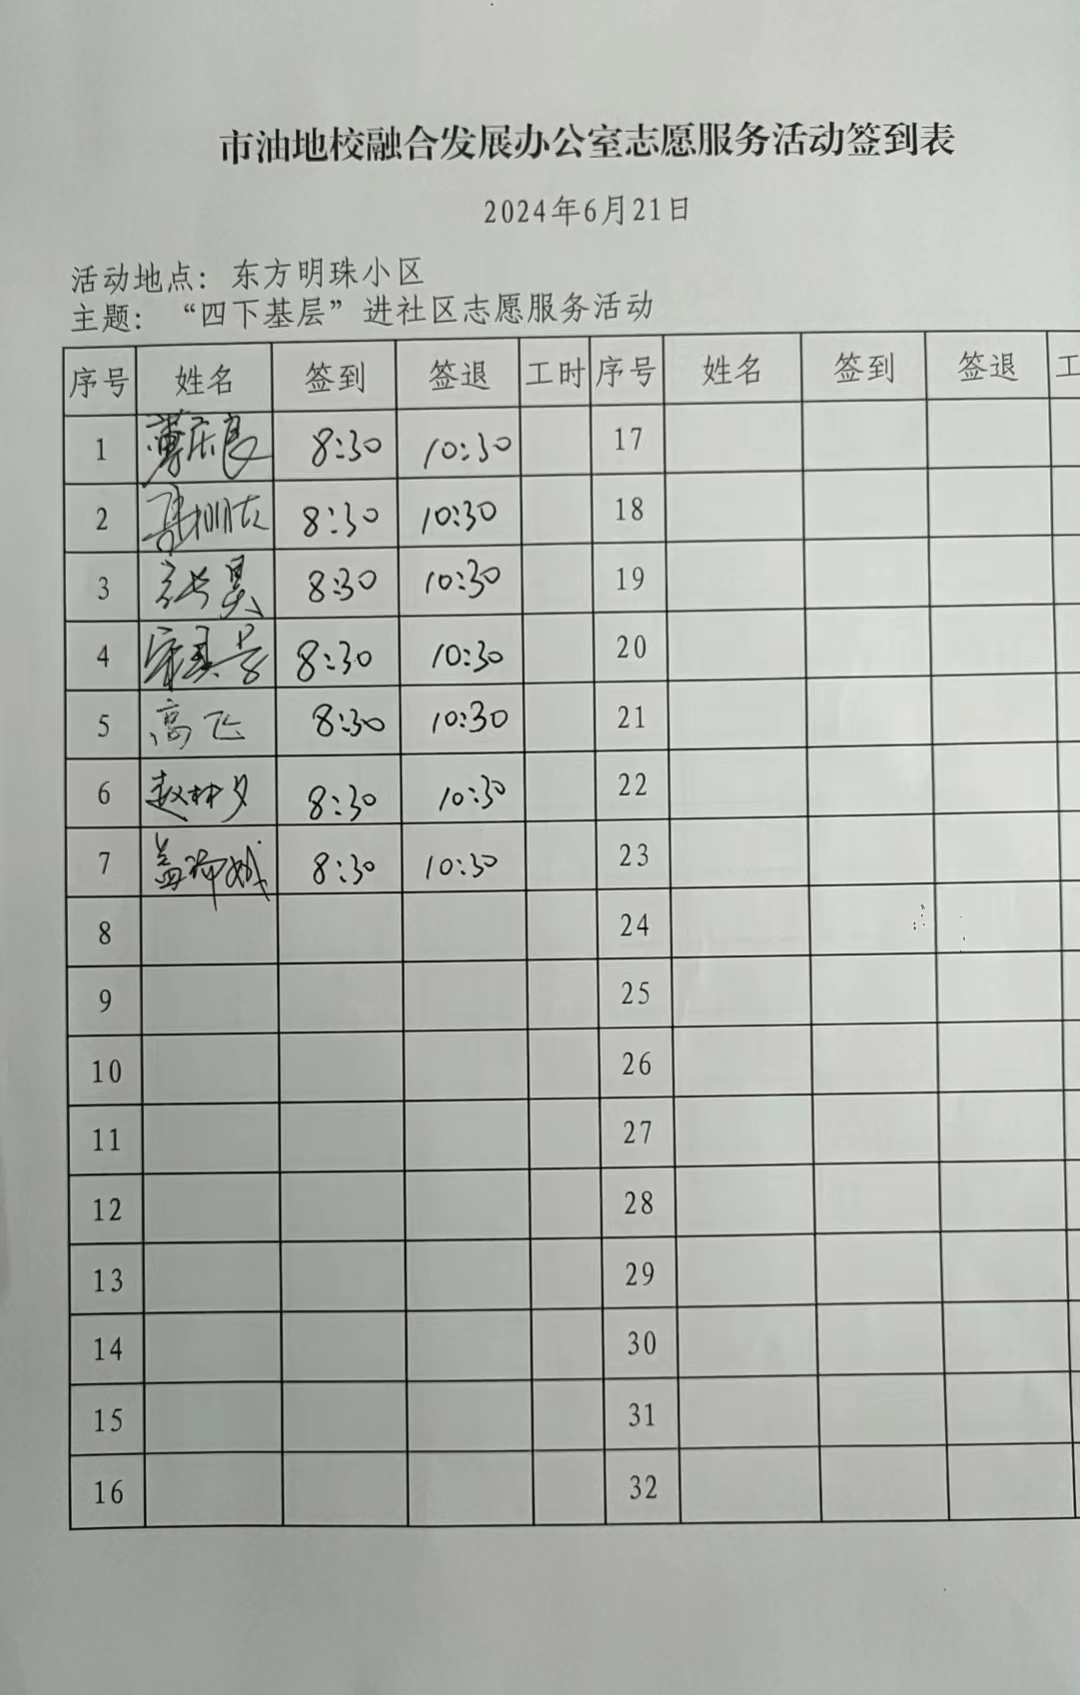 市油地校融合发展办公室志愿服务活动签到表
2024年6月21日
活动地点：东方明珠小区
主题：“四下基层”进社区志愿服务活动
序号 姓名 签到 签退 工时 序号 姓名 签到 签退 工
1 8:30 10:30 17
2 8:30 10:30 18
3 张昊 8:30 10:30 19
4 8:30 10:30 20
5 高飞 8:30 10:30 21
6 赵林夕 8:30 10:30 22
7 8:30 10:30 23
8 24
9 25
10 26
11 27
12 28
13 29
14 30
15 31
16 32